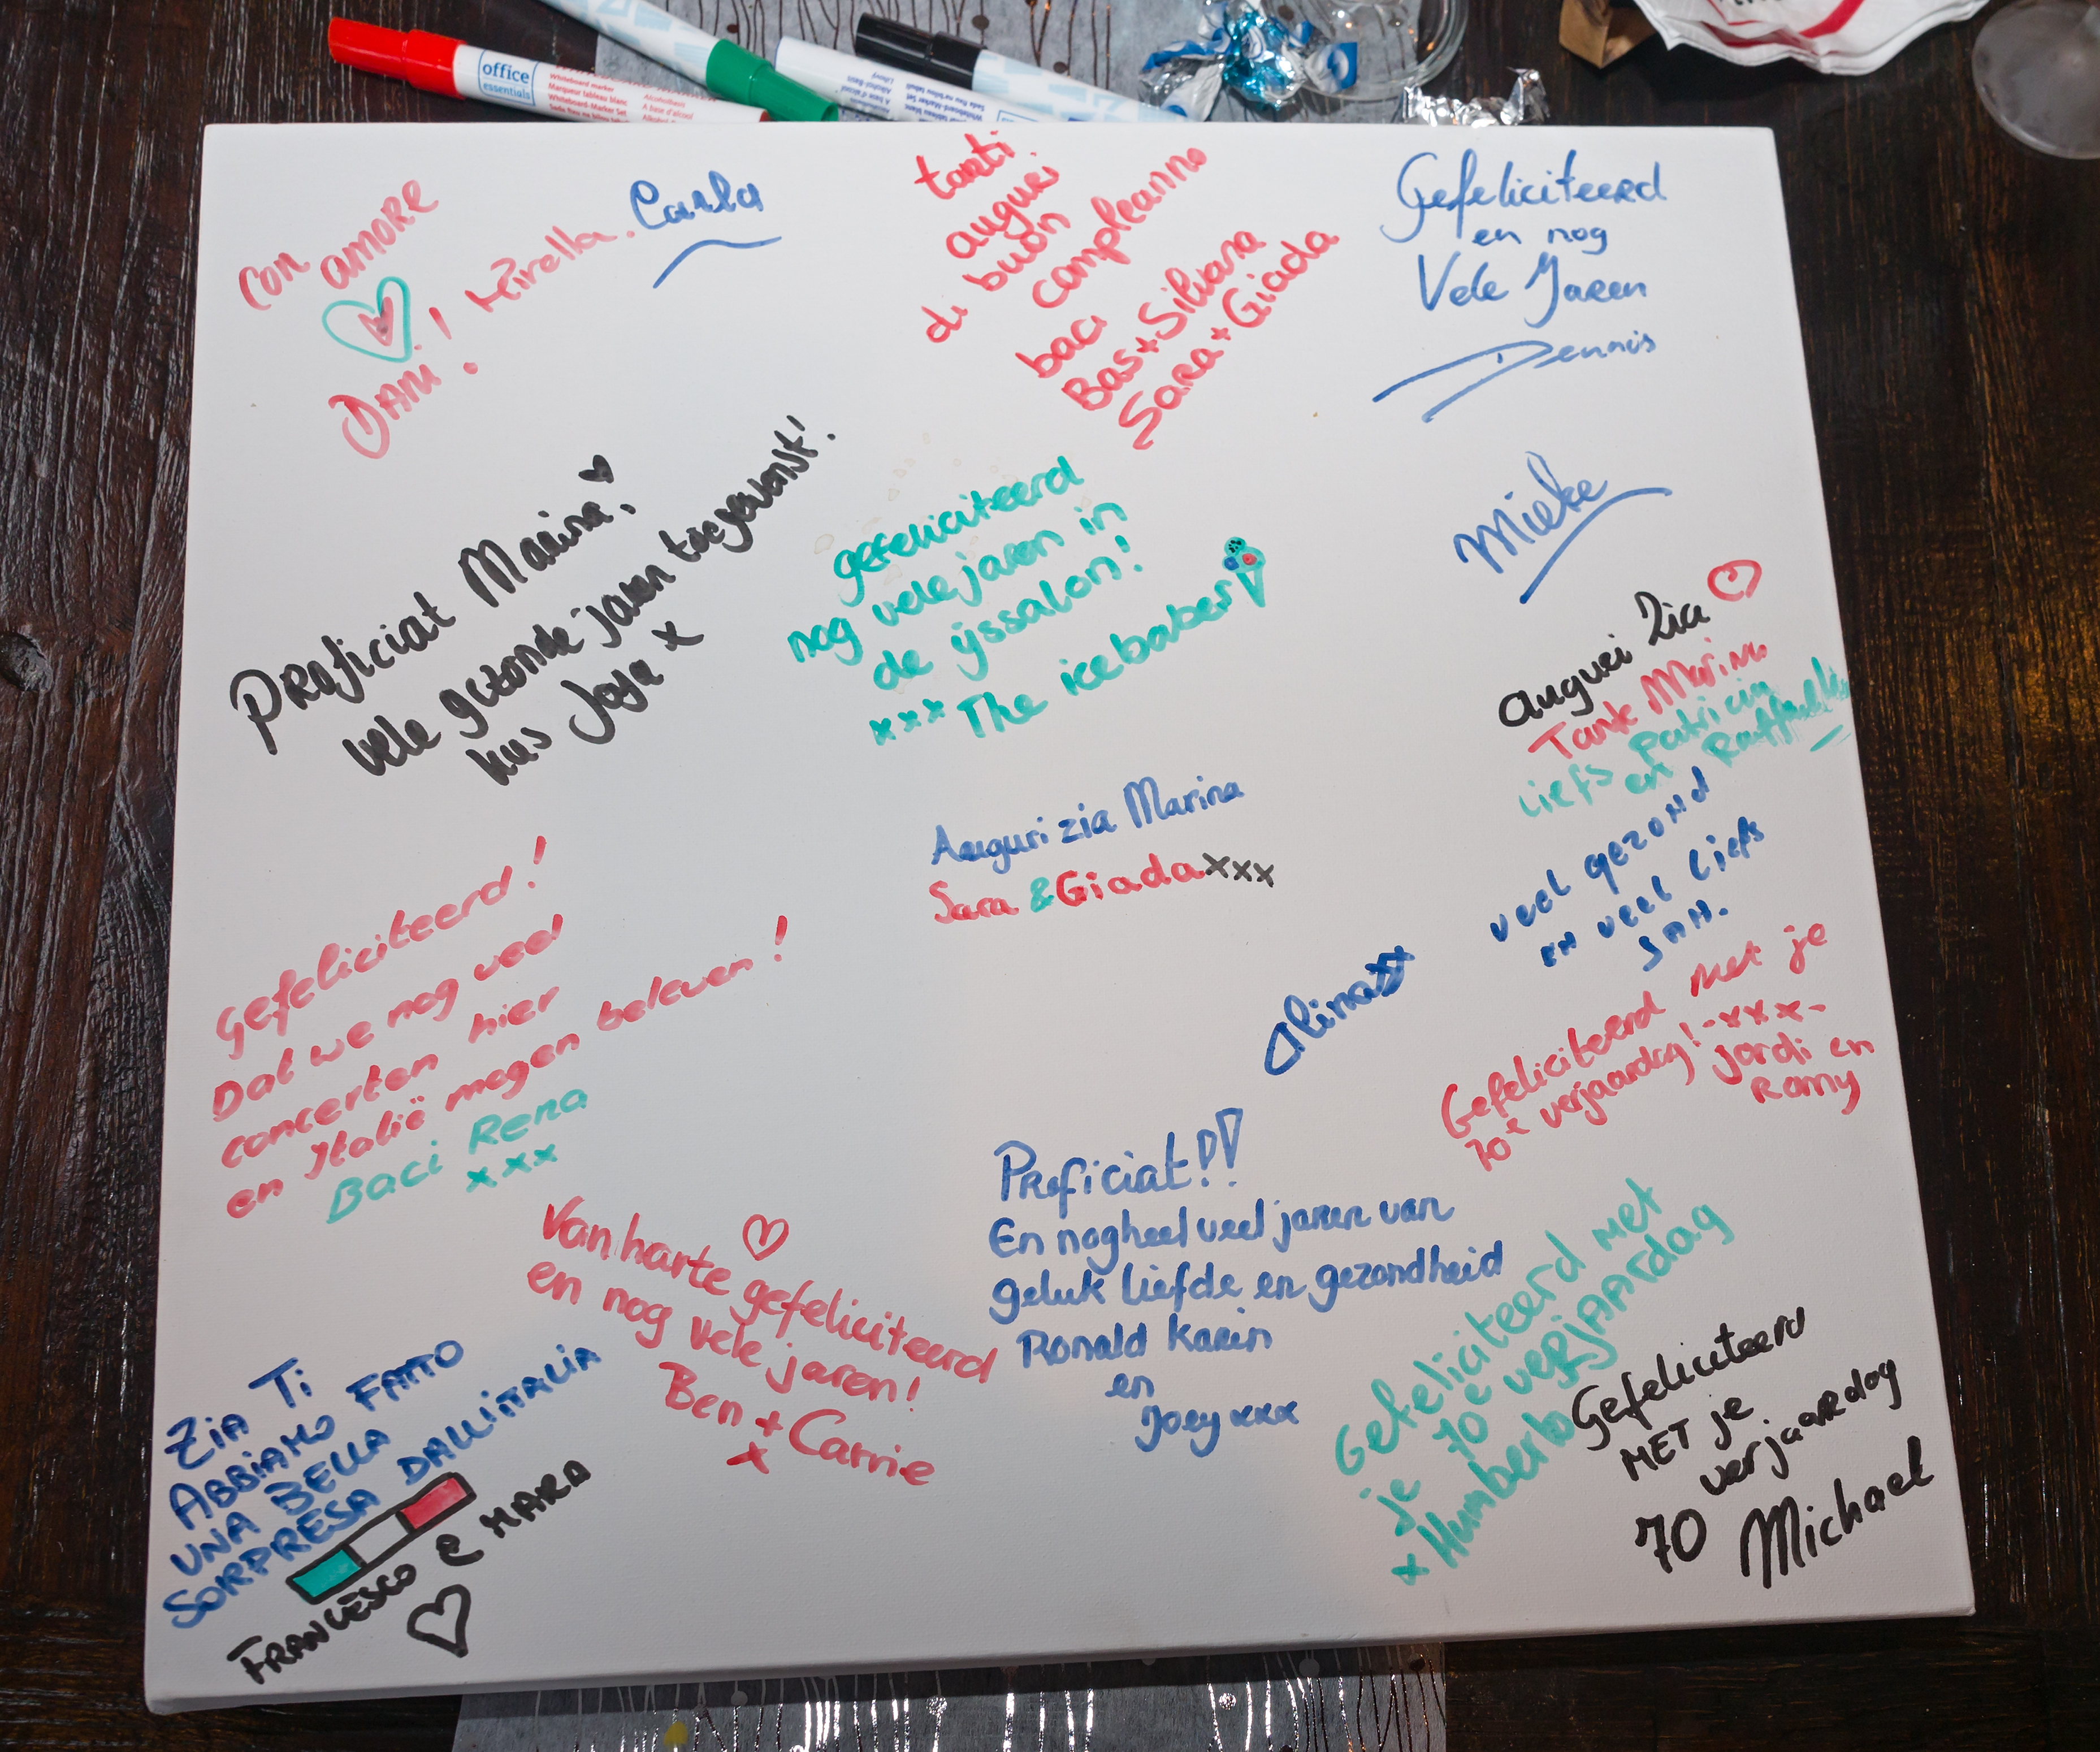 office
essentials
Whiteboard marker
Marqueur tableau blanc
Whiteboard-Marker Set
con amore
Dani! Mirella. Carla
tanti
auguei
di buon
compleanno
baci
Bas+Silvana
Sara+Giada
Gefeliciteerd
en nog
Vele Jaren
Dennis
Proficiat Marina,
vele gezonde jaren toegewenst!
kus Joya x
gefeliciteerd
nog vele jaren in
de ijssalon!
xxx The icebabes
Mieke
auguri Zia
Tante Marina
Liefs Patricia
en Raffaella
Auguri zia Marina
Sara & Giada xxx
veel gezond
en veel liefs
San.
Gefeliciteerd!
Dat we nog veel
concerten hier
en Italië mogen beleven!
Baci Rena
xxx
Alina xx
Gefeliciteerd met je
70e verjaardag! -xxx-
jordi en
Romy
Proficiat!!
En nog heel veel jaren van
geluk liefde en gezondheid
Ronald Karin
en
Joey xxx
Van harte gefeliciteerd
en nog vele jaren!
Ben + Carrie
x
Zia Ti
ABBIAMO FATTO
UNA BELLA
SORPRESA DALL'ITALIA
FRANCESCO E MARA
Gefeliciteerd met
je 70e verjaardag
x Humberto
Gefeliciteerd
MET je
verjaardag
70 Michael